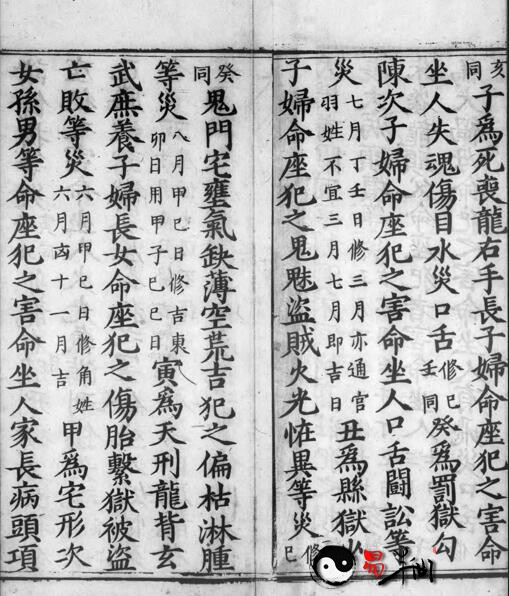 亥同子爲死喪龍右手長子婦命座犯之害命
坐人失魂傷目水災口舌修巳壬同癸爲罰獄勾
陳次子婦命座犯之害命坐人口舌鬭訟等
災七月丁壬日修三月亦通宫羽姓不宜三月七月即吉日丑爲縣獄少
子婦命座犯之鬼魅盜賊火光恠異等災修巳
癸同鬼門宅壅氣缺薄空荒吉犯之偏枯淋腫
等災八月甲巳日修吉東卯日用甲子巳巳日寅爲天刑龍背玄
武庶養子婦長女命座犯之傷胎繫獄被盜
亡敗等災六月甲巳日修角姓六月㐫十一月吉甲爲宅形次
女孫男等命座犯之害命坐人家長病頭項
易